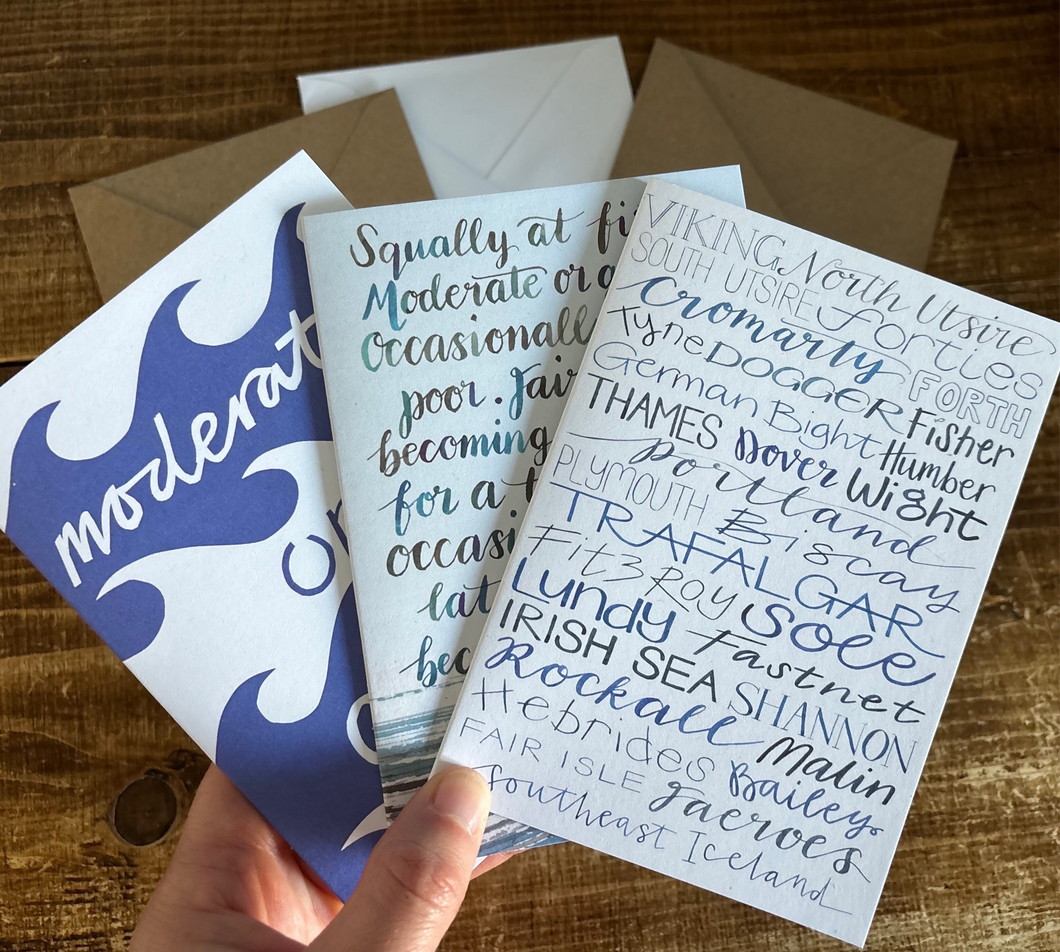 moderat
or
Squally at fi
Moderate or g
Occasionall
poor. Fair
becoming
for a t
occasi
lat
bec
VIKING North Utsire
SOUTH UTSIRE Forties
Cromarty FORTH
Tyne DOGGER Fisher
German Bight Humber
THAMES Dover Wight
Portland
PLYMOUTH Biscay
TRAFALGAR
FitzRoy Sole
Lundy Fastnet
IRISH SEA SHANNON
Rockall Malin
Hebrides Bailey
FAIR ISLE Faeroes
Southeast Iceland